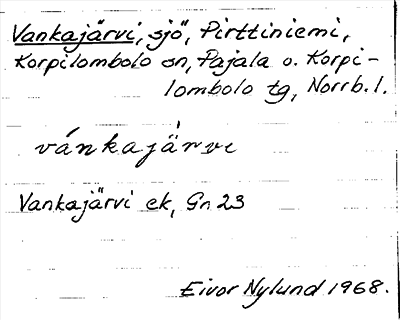 Vankajärvi, sjö, Pirttiniemi,
Korpilombolo sn, Pajala o. Korpi-
lombolo tg, Norrb. l.
vánkajärvi
Vankajärvi ek, Gn 23
Eivor Nylund 1968.